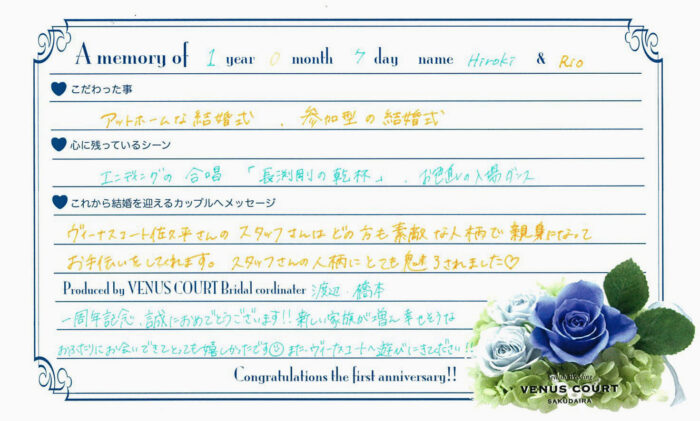 A memory of 1 year 0 month 7 day name Hiroki & Rio
こだわった事
アットホームな結婚式 、 参加型の結婚式
心に残っているシーン
エンディングの 合唱 「長渕剛の乾杯」 、 お色直しの入場ダンス
これから結婚を迎えるカップルへメッセージ
ヴィーナスコート佐久平さんの スタッフさんはどの方も素敵な人柄で 親身になって
お手伝いをしてくれます。 スタッフさんの人柄にとても魅了されました♡
Produced by VENUS COURT Bridal cordinater 渡辺・橋本
一周年記念、誠におめでとうございます!! 新しい家族が増え幸せそうな
おふたりにお会いできてとっても嬉しかったです☺ また、ヴィーナスコートへ遊びにきてください!!
Congratulations the first anniversary!!
VENUS COURT
SAKUDAIRA